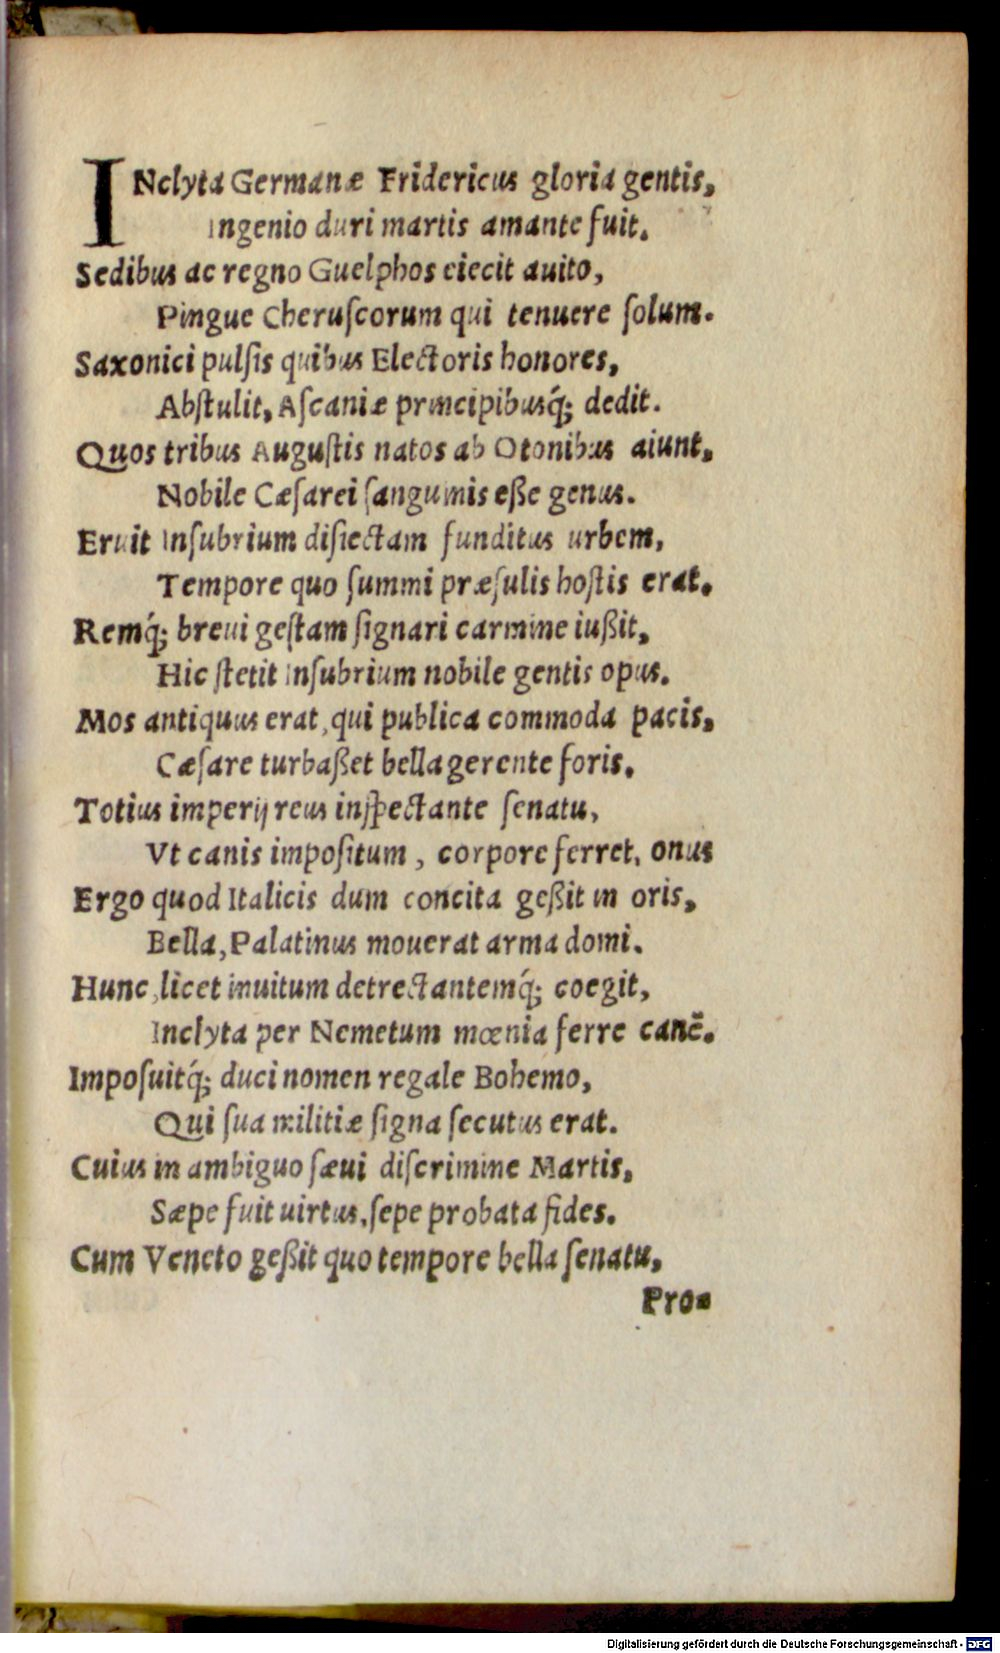 INclyta Germanæ Fridericus gloria gentis,
Ingenio duri martis amante fuit.
Sedibus ac regno Guelphos eiecit auito,
Pingue Cheruſcorum qui tenuere ſolum.
Saxonici pulſis quibus Electoris honores,
Abſtulit, Aſcaniæ principibusq́; dedit.
Quos tribus Auguſtis natos ab Otonibus aiunt,
Nobile Cæſarei ſanguinis eße genus.
Eruit Inſubrium diſiectam funditus urbem,
Tempore quo ſummi præſulis hoſtis erat.
Remq́; breui geſtam ſignari carmine iußit,
Hic ſtetit Inſubrium nobile gentis opus.
Mos antiquus erat, qui publica commoda pacis,
Cæſare turbaßet bella gerente foris,
Totius imperij reus inſpectante ſenatu,
Vt canis impoſitum, corpore ferret, onus
Ergo quod Italicis dum concita geßit in oris,
Bella, Palatinus mouerat arma domi.
Hunc, licet inuitum detrectantemq́; coegit,
Inclyta per Nemetum mœnia ferre canē.
Impoſuitq́; duci nomen regale Bohemo,
Qui ſua militiæ ſigna ſecutus erat.
Cuius in ambiguo ſæui diſcrimine Martis,
Sæpe fuit uirtus, ſepe probata fides.
Cum Veneto geßit quo tempore bella ſenatu,
Pro-
Digitalisierung gefördert durch die Deutsche Forschungsgemeinschaft - DFG